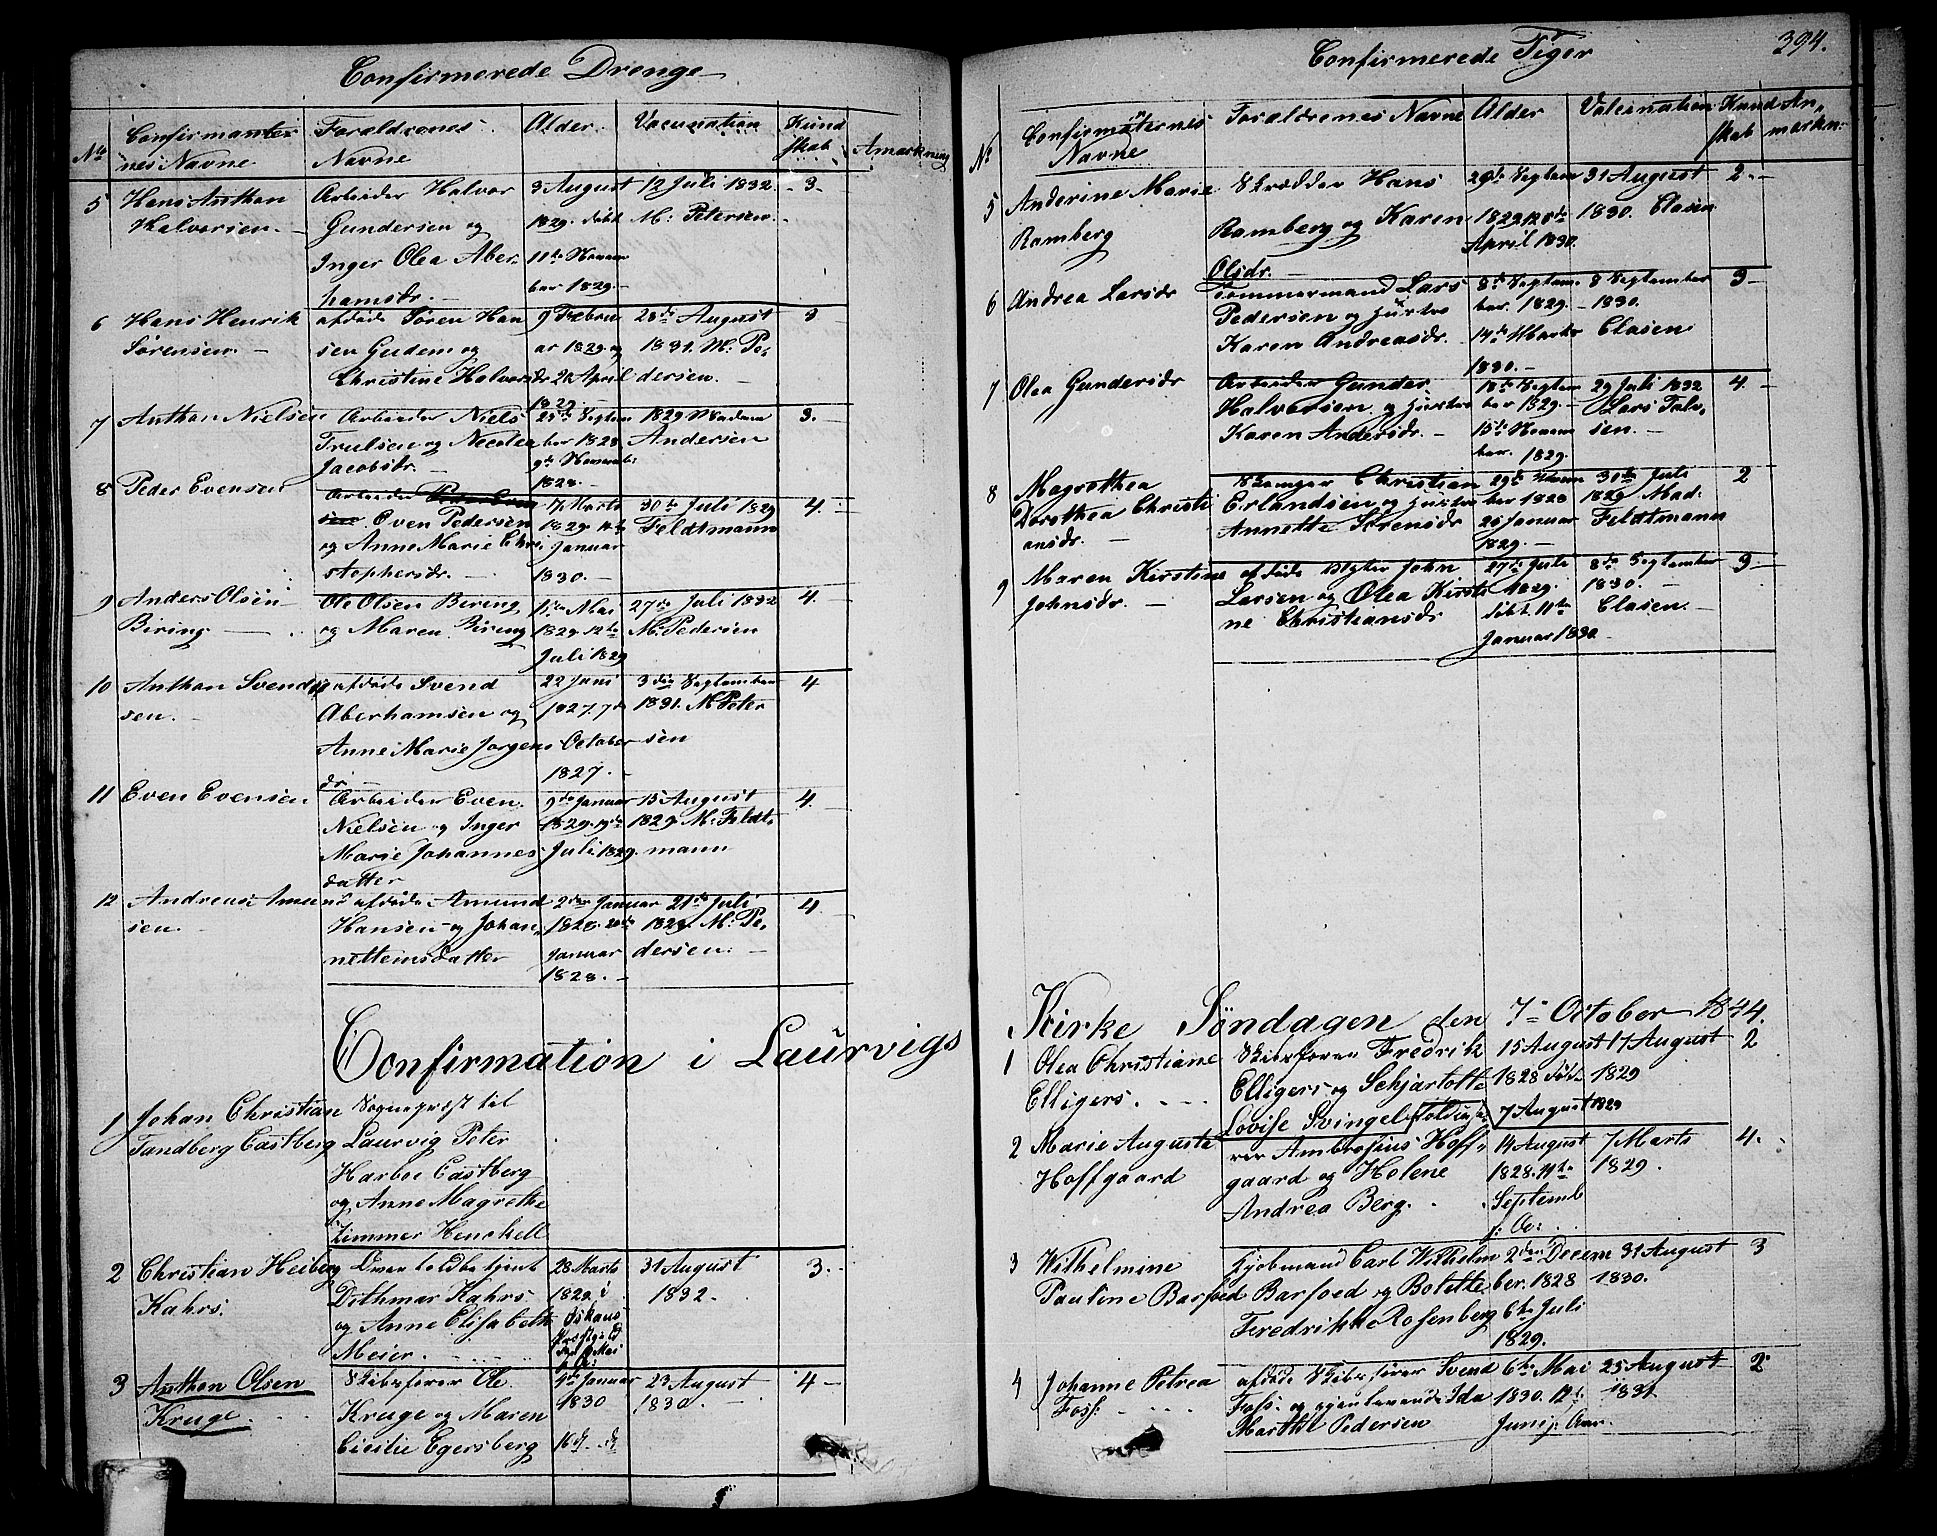 Confirmerede Drenge
No Confirmanter
nes Navne
Forældrenes
Navne
Alder.
Vaccination
Kund
skab
Amarkning
5 Hans Anthon
Halvorsen.
Arbeider Halvor
Gundersen og
Inger Olea Aber-
hamsdr.
3 August
1829. døbt
11te Novem
ber 1829.
12 Juli 1832.
M. Petersen.
3.
6 Hans Henrik
Sørensen.
afdøde Søren Han
sen Gudem og
Christine Halvorsdr
9 Februar
ar 1829. og
2 April
1829.
28de August
1831. M. Pe,
dersen.
3
7 Anthon Nielsen
Arbeider Niels
Trulsen og Nicolea
Jacobsdr.
25de Septem
ber 1828
9de Novemb:
1828.
1829 Madam
Andersen
3.
8 Peder Evensen
Arbeider Peder Even
sen Even Pedersen
og Anne Marie Chri
stophersdr.
7 Marts
1829. 11te
Januar
1830.
30te Juli 1829
Feldtmann
4.
9 Anders Olsen
Biring
Ole Olsen Biring
og Maren Biring
11te Mai
1829. 12te
Juli 1829
27de Juli 1832
M. Pedersen
4.
10 Anthon Svend
sen.
afdøde Svend
Aberhamsen og
Anne Marie Jorgens
dr
22 Juni
1827. 7de
October
1827.
3die September
1831. M. Peter
sen
4
11 Even Evensen
Arbeider Even
Nielsen og Inger
Marie Johannes
datter
9de Januar
1829. 19de
Juli 1829.
15 August
1829 M. Feldt
mann
4.
12 Andreas Amund
sen.
afdøde Amund
Hansen og Johan,
nettemsdatter
2den Januar
1828. 20de
Januar
1828.
21de Juli
1829. M. Pe,
dersen.
4
Confirmation i Laurvigs
1 Johan Christian
Tandberg Castberg
Sognepræst til
Laurvig Peter
Harboe Castberg
og Anne Magrethe
Zimmer Henckell
2 Christian Heiberg
Kahrs.
Overtoldbetjent
Dithmar Kahrs
og Anne Elisabeth
Meier.
28 Marts
1829 i
31 August
1832.
3.
3 Anthon Olsen
Kruge.
Skibsfører Ole
Kruge og Maren
Cicilie Egersberg
4de Januar
1830
16
23 August
1830.
4
Confirmerede Piger
394.
No Confirmanternes
Navne
Forældrenes Navne
Alder
Vakcination
Kund
skab
An,
markn:
5 Anderine Marie
Ramberg
Skrædder Hans
Ramberg og Karen
Olsdr.
29de Septem
1829. 12te
April 1830.
31 August
1830. Clasen
2.
6 Andrea Larsdr
Tømmermand Lars
Pedersen og hustro
Karen Andreasdr.
8de Septem
ber. 1829.
14de Marts
1830.
8 September
1830.
Clasen
3
7 Olea Gundersdr
Arbeider Gunder
Halvorsen og hustro
Karen Andersdr.
18de Septem
ber 1829.
15de Novem
ber. 1829.
29 Juli 1832
Lars Tol,
sen.
4.
8 Magrethea
Dorothea Christi
ansdr.
Skomager Christian
Erlandsen og hustro
Annette Sørensdr
29de Novem
ber 1828
26 Januar
1829.
30te Juli
1829 Mad.
Feldtmann
2
9 Maren Kirstine
Johnsdr.
afdøde John
Larsen og Olea Kirsti
ne Christiansdr
27de Juli
1829.
døbt. 11te
Januar 1830.
8de September
1830.
Clasen.
3
Kirke Søndagen den 7de October 1844.
1 Olea Christiane
Elligers.
Skibsfører Fredrik
Elligers og Schjartotte
Lovise Svingel
15 August
1828 død.
7 August
17 August
1829
1829
2
2 Marie Augusta
Hoffgaard
Toldinspe
rer Ambrosius Hoff,
gaard og Helene
Andrea Berg.
14 August
1828. 14te
Septemb
7 Marts
1829.
4.
3 Wilhelmine
Pauline Barfoed
Kjøbmand Carl Wilhelm
Barfoed og Bolette
Fredrikke Rosenberg
2den Decem
ber. 1828
6te Juli
1829.
31 August
1830.
3
4 Johanne Petrea
Foss.
afdøde Skibsfører Svend
Foss. og gjenlevende Ida
Marthe Pedersen
6te Mai
1830. 12te
Junij.
25 August
1831.
2